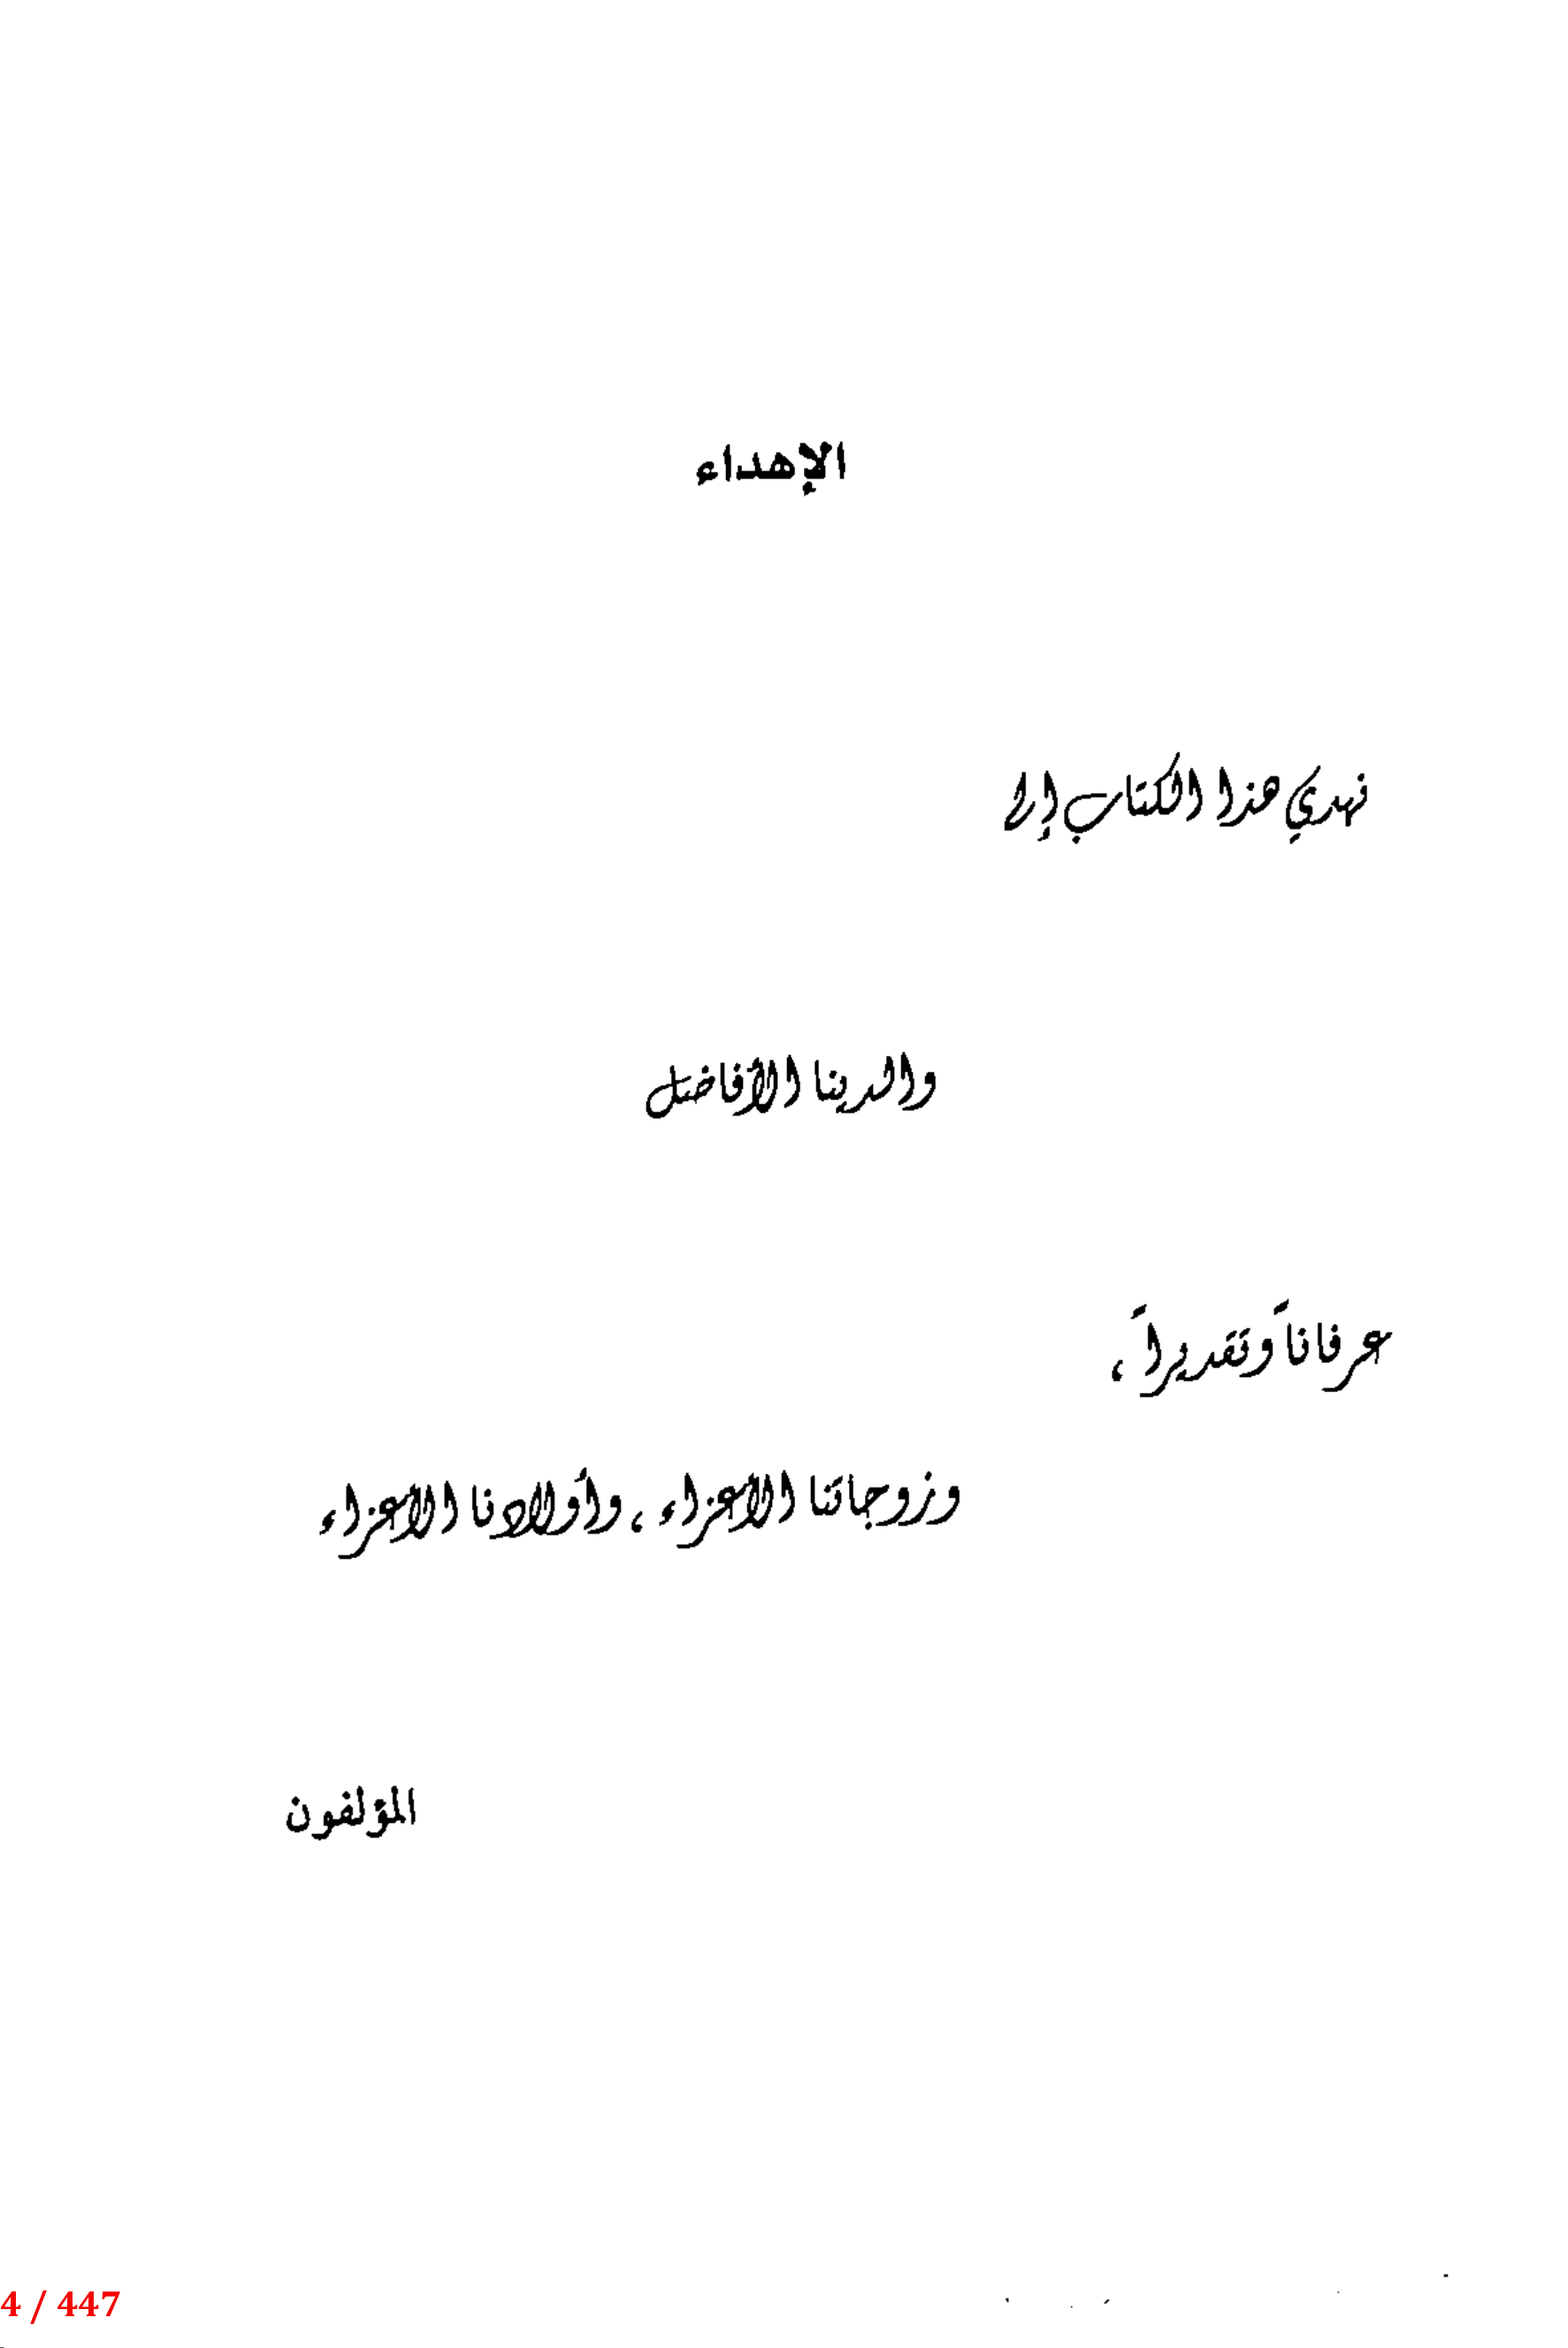 الإهداء
نهدي هذا الكتاب إلى
والدينا الأفاضل
عرفاناً وتقديراً ،
وزوجاتنا الاعزاء ، وأولادنا الاعزاء
المؤلفون
4 / 447